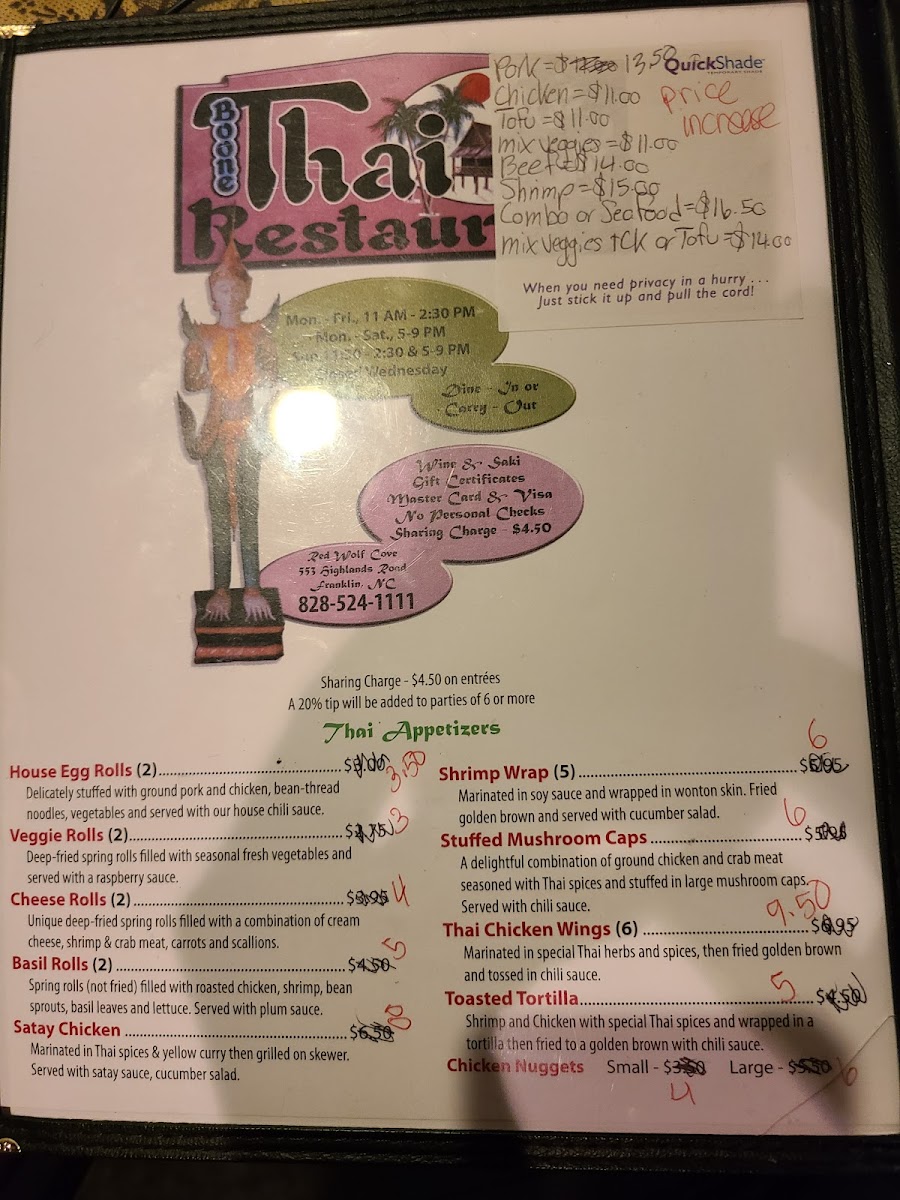 Boone
Thai
Restaur
Pork = $ 13.50
QuickShade
TEMPORARY SHADE
Chicken = $11.00
price
increase
Tofu = $11.00
mix veggies = $11.00
Beef = $14.00
Shrimp = $15.00
Combo or Seafood = $16.50
mix veggies + CK or Tofu = $14.00
When you need privacy in a hurry . . .
Just stick it up and pull the cord!
Mon. - Fri., 11 AM - 2:30 PM
Mon. - Sat., 5-9 PM
Sun. 11:30 - 2:30 & 5-9 PM
Closed Wednesday
Dine - In or
Carry - Out
Wine & Saki
Gift Certificates
Master Card & Visa
No Personal Checks
Sharing Charge - $4.50
Red Wolf Cove
553 Highlands Road
Franklin, NC
828-524-1111
Sharing Charge - $4.50 on entrées
A 20% tip will be added to parties of 6 or more
Thai Appetizers
House Egg Rolls (2) $ 3.50
Delicately stuffed with ground pork and chicken, bean-thread
noodles, vegetables and served with our house chili sauce.
Veggie Rolls (2) $2.75 3
Deep-fried spring rolls filled with seasonal fresh vegetables and
served with a raspberry sauce.
Cheese Rolls (2) $3.95 4
Unique deep-fried spring rolls filled with a combination of cream
cheese, shrimp & crab meat, carrots and scallions.
Basil Rolls (2) $4.50 5
Spring rolls (not fried) filled with roasted chicken, shrimp, bean
sprouts, basil leaves and lettuce. Served with plum sauce.
Satay Chicken $6.50 8
Marinated in Thai spices & yellow curry then grilled on skewer.
Served with satay sauce, cucumber salad.
Shrimp Wrap (5) $5.95 6
Marinated in soy sauce and wrapped in wonton skin. Fried
golden brown and served with cucumber salad.
Stuffed Mushroom Caps $5.95 6
A delightful combination of ground chicken and crab meat
seasoned with Thai spices and stuffed in large mushroom caps.
Served with chili sauce.
Thai Chicken Wings (6) $6.95 9.50
Marinated in special Thai herbs and spices, then fried golden brown
and tossed in chili sauce.
Toasted Tortilla $4.50 5
Shrimp and Chicken with special Thai spices and wrapped in a
tortilla then fried to a golden brown with chili sauce.
Chicken Nuggets Small - $3.50 4 Large - $5.50 6